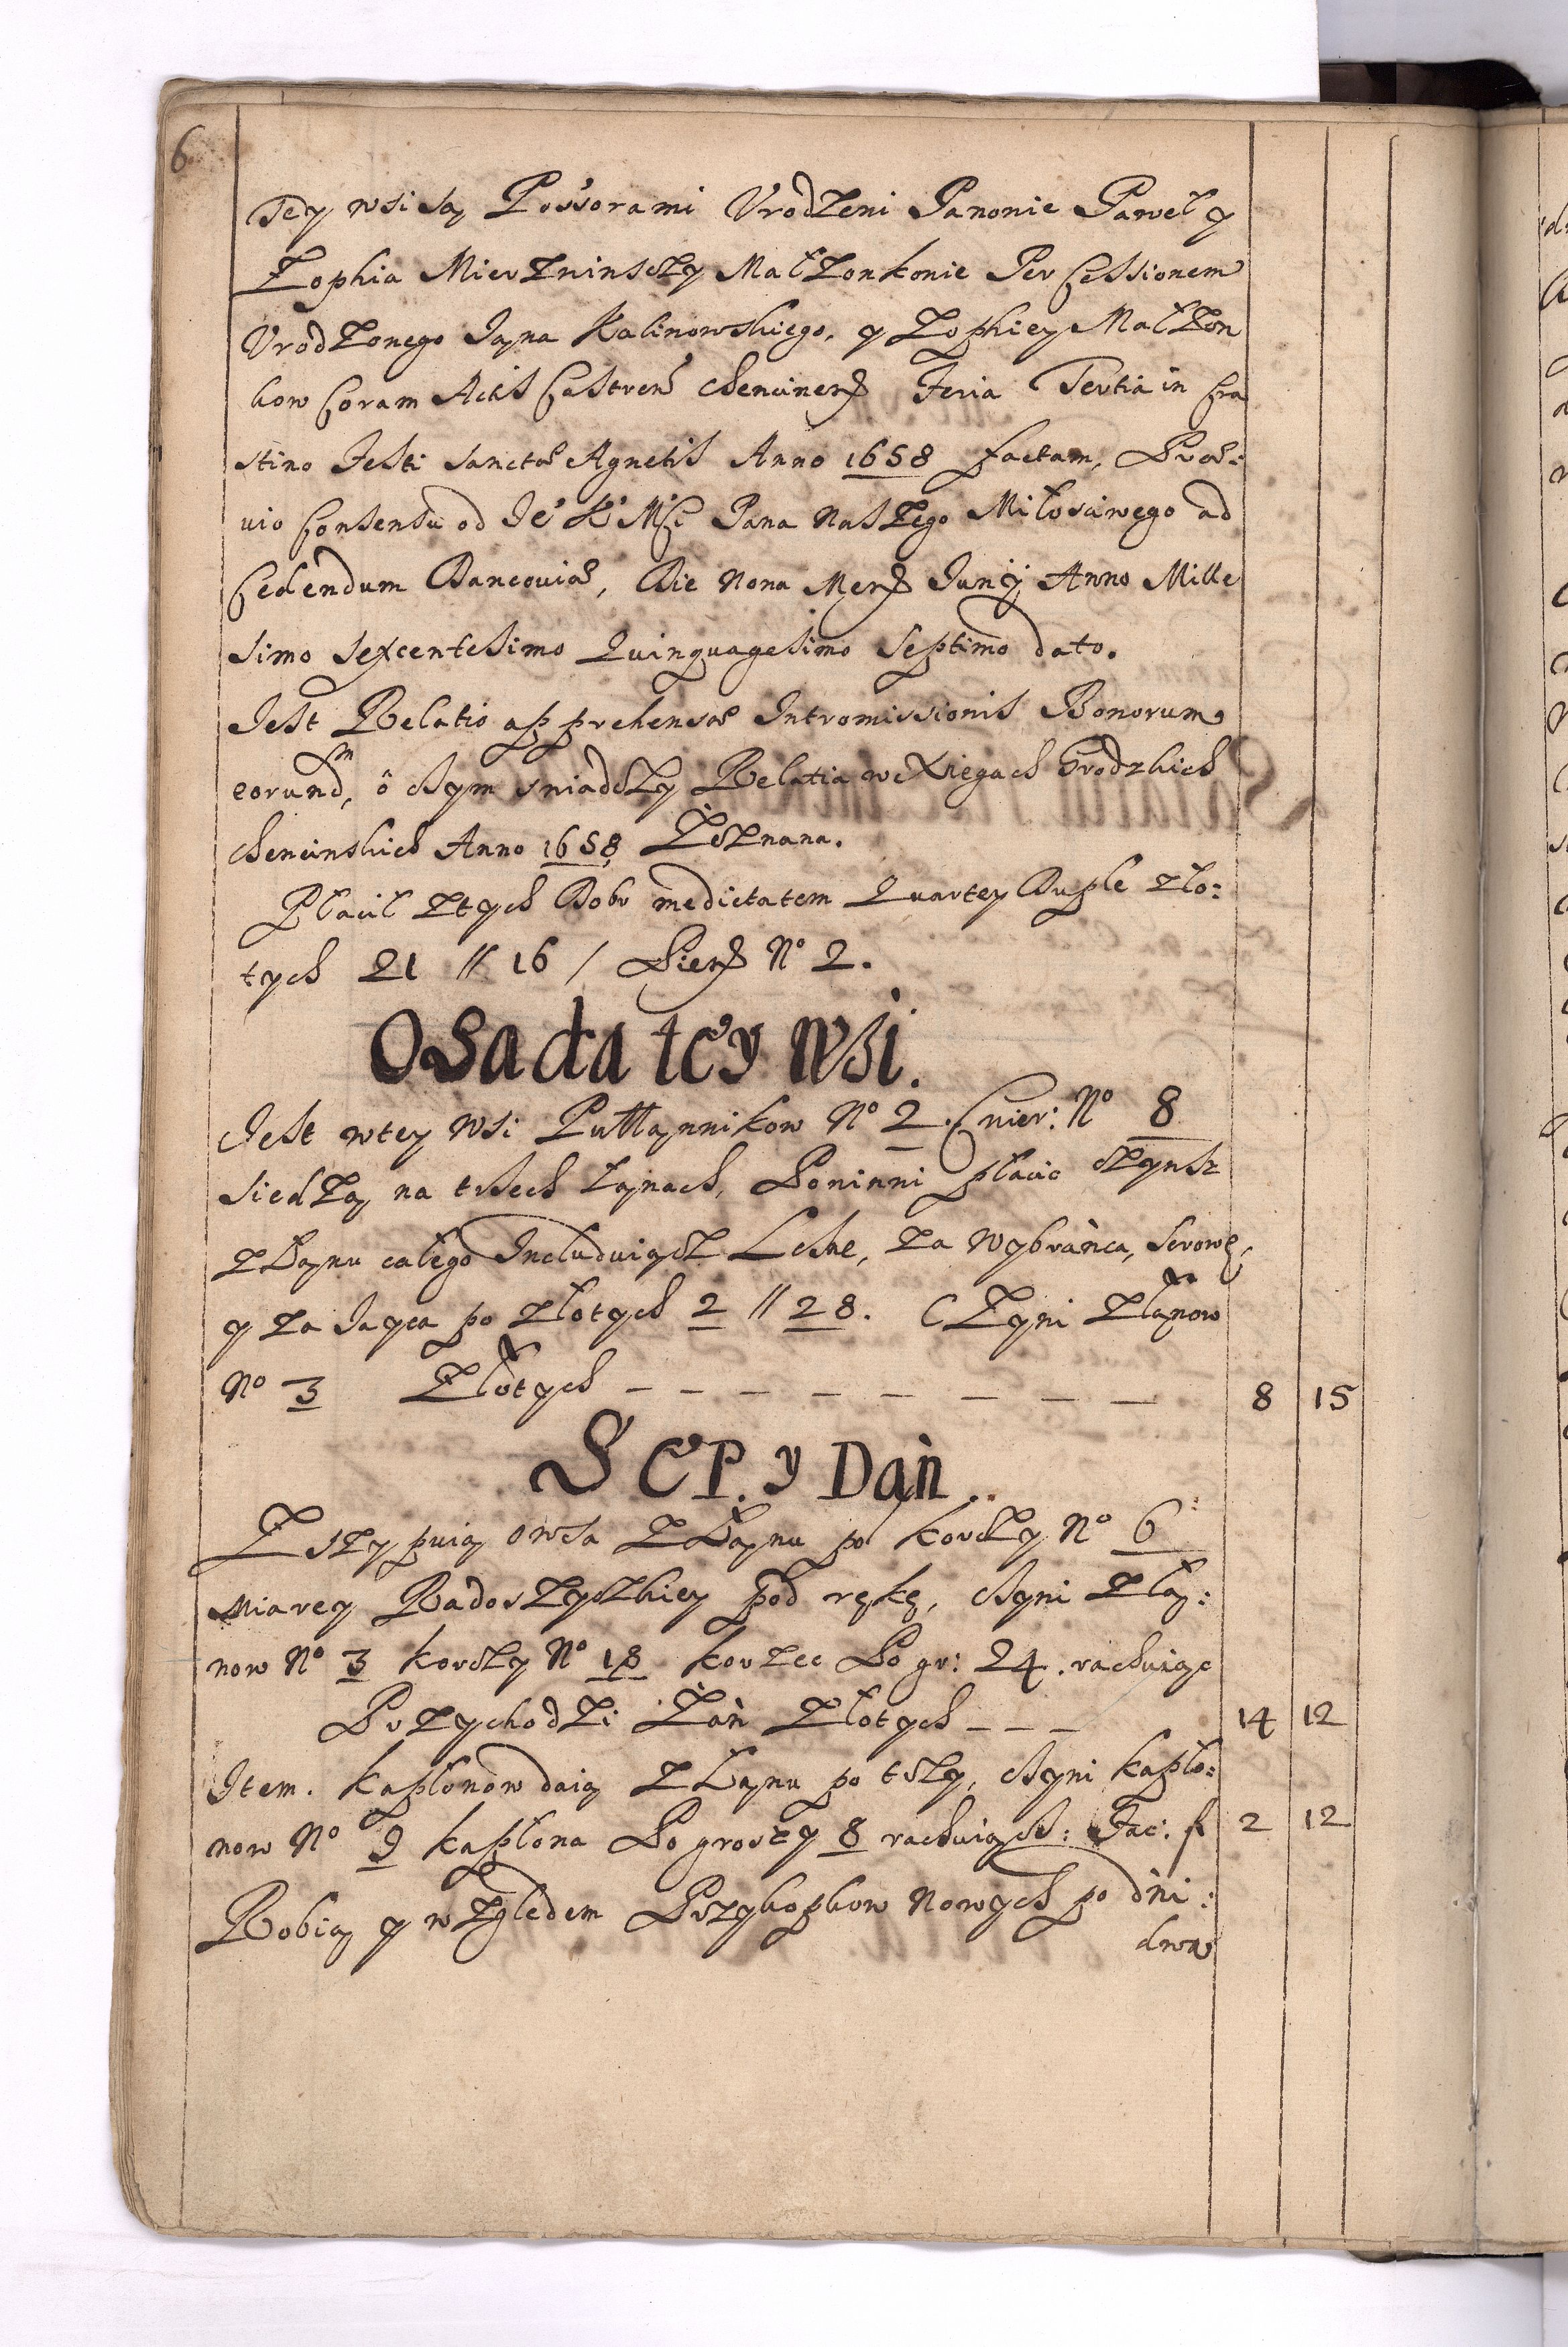 6
Tey wsi są Poss'orami Vrodzeni Panowie Paweł y
Zophia Mierznińsczy Małzonkowie Per Cessionem
Vrodzonego Jana Kalinowskiego, y Zophiey Małzon
kow Coram Actis Castren Chencinen Feria Tertia in Cra
stino Festi Sanctæ Agnetis Anno 1658 factam, Præ:
uio Consensu od Je' K' Msc Pana Naszego Miłosciwego ad
Cedendum Dancouiæ, Die Nona Mens Junij Anno Mille
simo Sexcentesimo Quinquagesimo Septimo dato.
Jest Relatio apprehensæ Intromissionis Bonorum
eorund^m, o czym swiadczy Relatia w Xięgach Grodzkich
Chencinskich Anno 1658 Zeznana.
Płacił z tych Dobr medietatem Quartey Duple zło:
tych 21 // 16 / Dien No 2.
Osada tey Wsi.
Jest w tey Wsi Pułłaynnikow No 2. Cwier: No 8
siedzą na trzech łanach, Powinni płacic czynsz
z Łanu całego Includuiącz Lesne, za Wybrańca, Serowe,
y za Jayca po złotych 2 // 28. Czyni z łanow
No 3 Złotych — — — — — — — — 8 15
SEP. y Dań
Zsypuią owsa z Łanu po korczy No 6
Miarey Radoszyczkiey pod rękę, czyni z ła:
now No 3 korczy No 18 korzec Po gr: 24. rachuiąc
Przychodzi Zań Złotych — — — 14 12
Item. Kapłonow daią z Łanu po trzy, czyni kapło:
now No 9 kapłona Po groszy 8 rachuiącz: Fac: f 2 12
Robią y względem Przykopkow Nowych po dni:
dwa